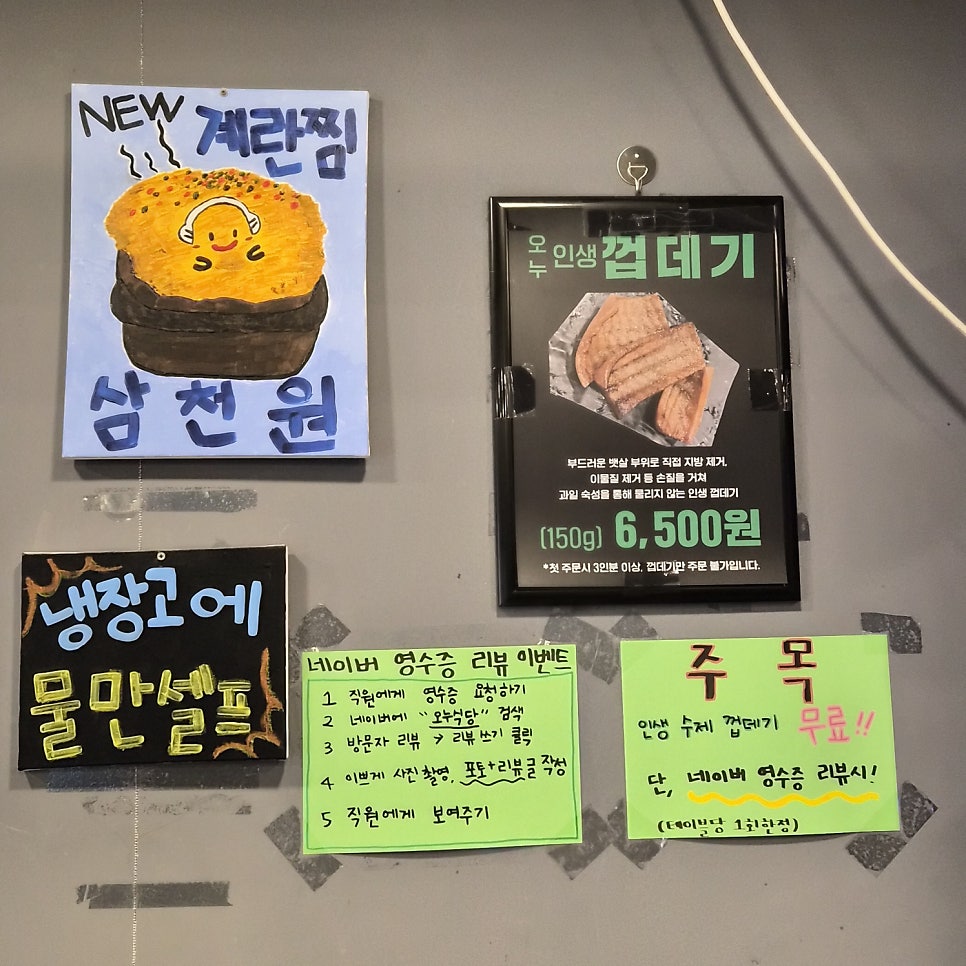 NEW 계란찜
삼천원
오누 인생 껍데기
부드러운 뱃살 부위로 직접 지방 제거,
이물질 제거 등 손질을 거쳐
과일 숙성을 통해 물리지 않는 인생 껍데기
(150g) 6,500원
*첫 주문시 3인분 이상, 껍데기만 주문 불가입니다.
냉장고에
물만셀프
네이버 영수증 리뷰 이벤트
1 직원에게 영수증 요청하기
2 네이버에 "오누식당" 검색
3 방문자 리뷰 → 리뷰쓰기 클릭
4 이쁘게 사진촬영, 포토+리뷰글 작성
5 직원에게 보여주기
주 목
인생 수제 껍데기 무료!!
단, 네이버 영수증 리뷰시!
(테이블당 1회한정)